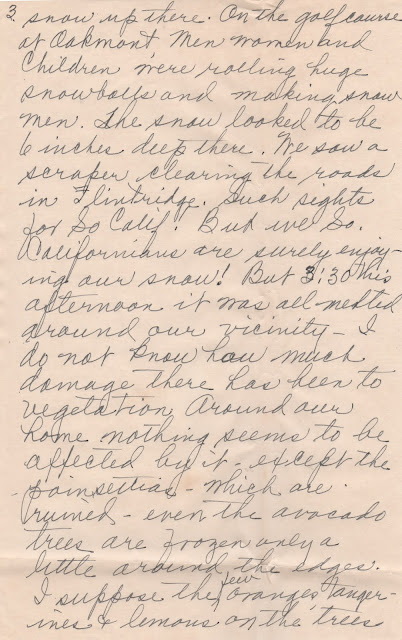 3
snow up there. On the golf course
at Oakmont Men women and
Children were rolling huge
snowballs and making snow
men. The snow looked to be
6 inches deep there. We saw a
scraper clearing the roads
in Flintridge. Such sights
for So Calif! But we So.
Californians are surely enjoy-
ing our snow! But 3:30 this
afternoon it was all melted
around our vicinity - I
do not know how much
damage there has been to
vegetation Around our
home nothing seems to be
affected by it - except the
- poinsettias - which are
ruined - even the avocado
trees are frozen only a
little around the edges.
I suppose the few oranges tanger-
ines & lemons on the trees